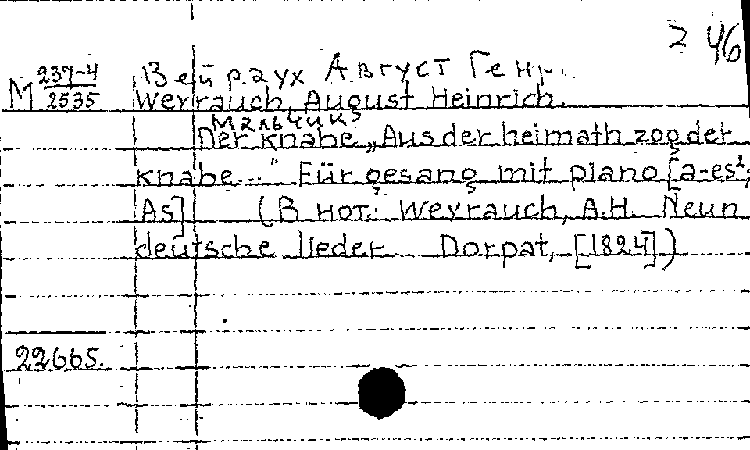 2 46
М 237-4 Вейраух Август Генр.
2535 Weyrauch, August Heinrich.
Мальчик
Der knabe „Aus der heimath zog der
knabe..." Für gesang mit piano [a-es²;
As] (В нот.: Weyrauch, A.H. Neun
deutsche lieder. Dorpat, [1824])
22665.